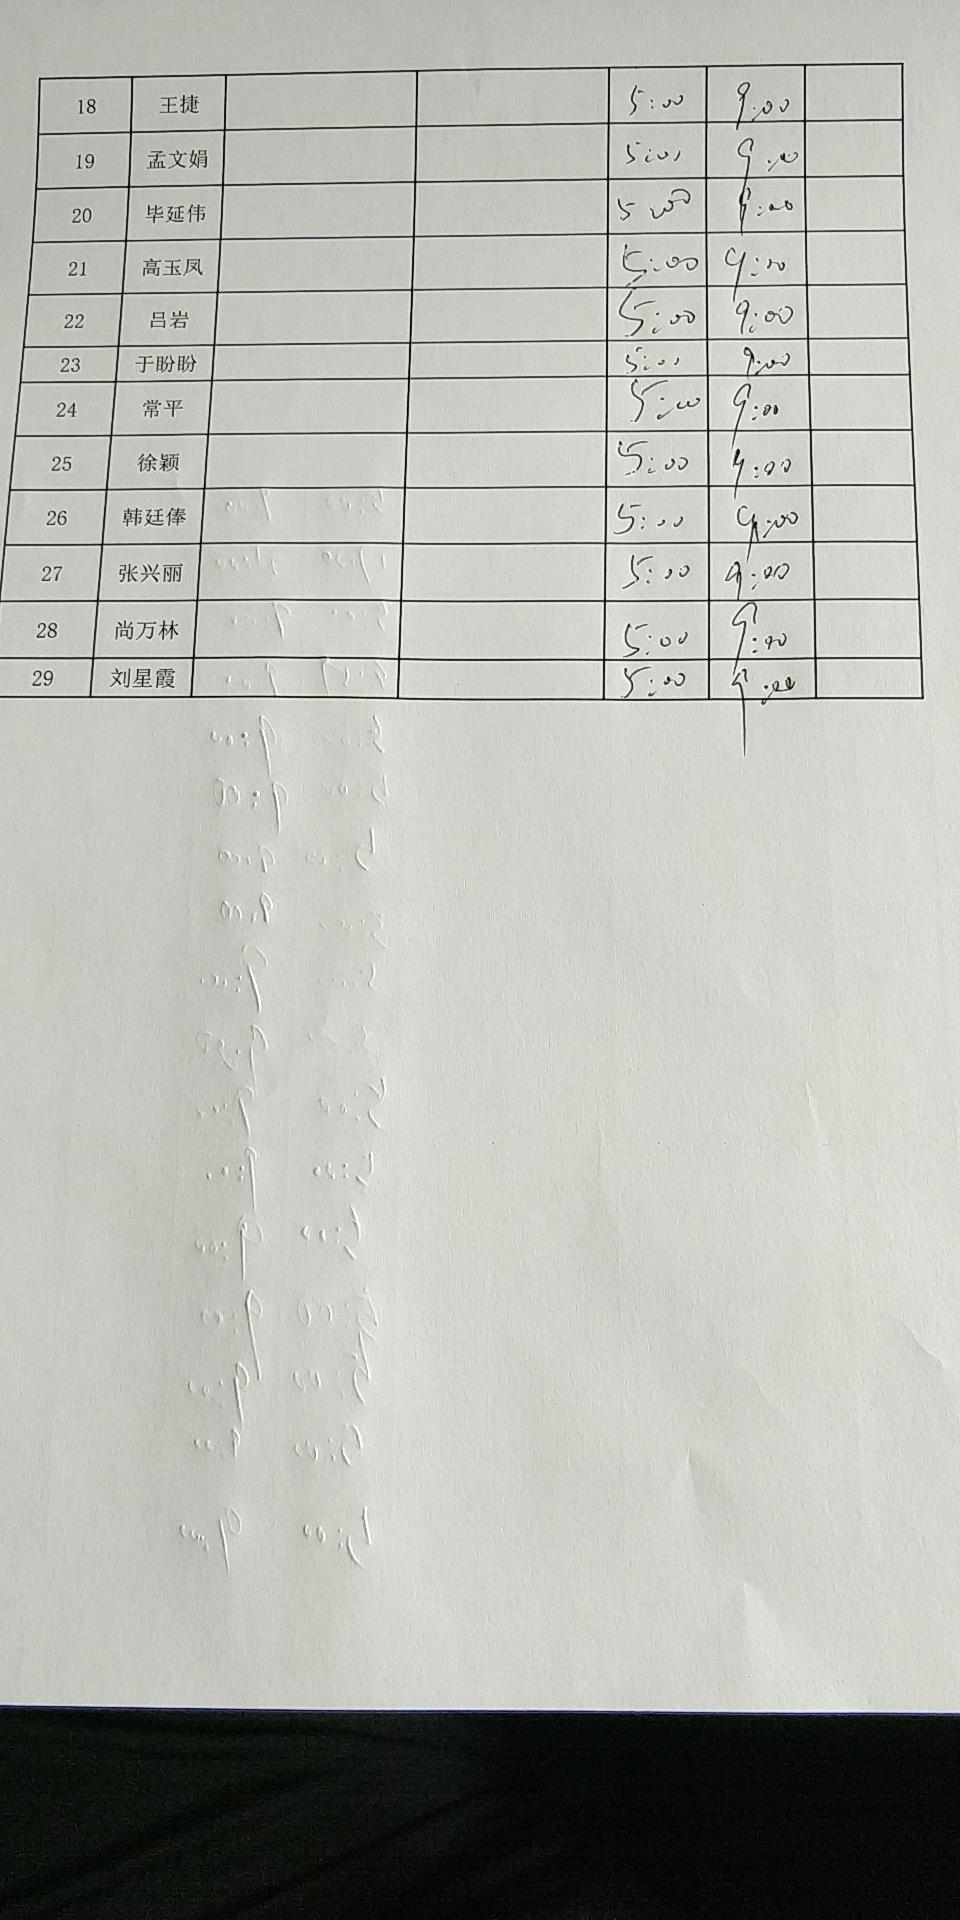 18 王捷 5:00 9:00
19 孟文娟 5:00 9:00
20 毕延伟 5:00 9:00
21 高玉凤 5:00 9:00
22 吕岩 5:00 9:00
23 于盼盼 5:00 9:00
24 常平 5:00 9:00
25 徐颖 5:00 9:00
26 韩廷俸 5:00 9:00
27 张兴丽 5:00 9:00
28 尚万林 5:00 9:00
29 刘星霞 5:00 9:00